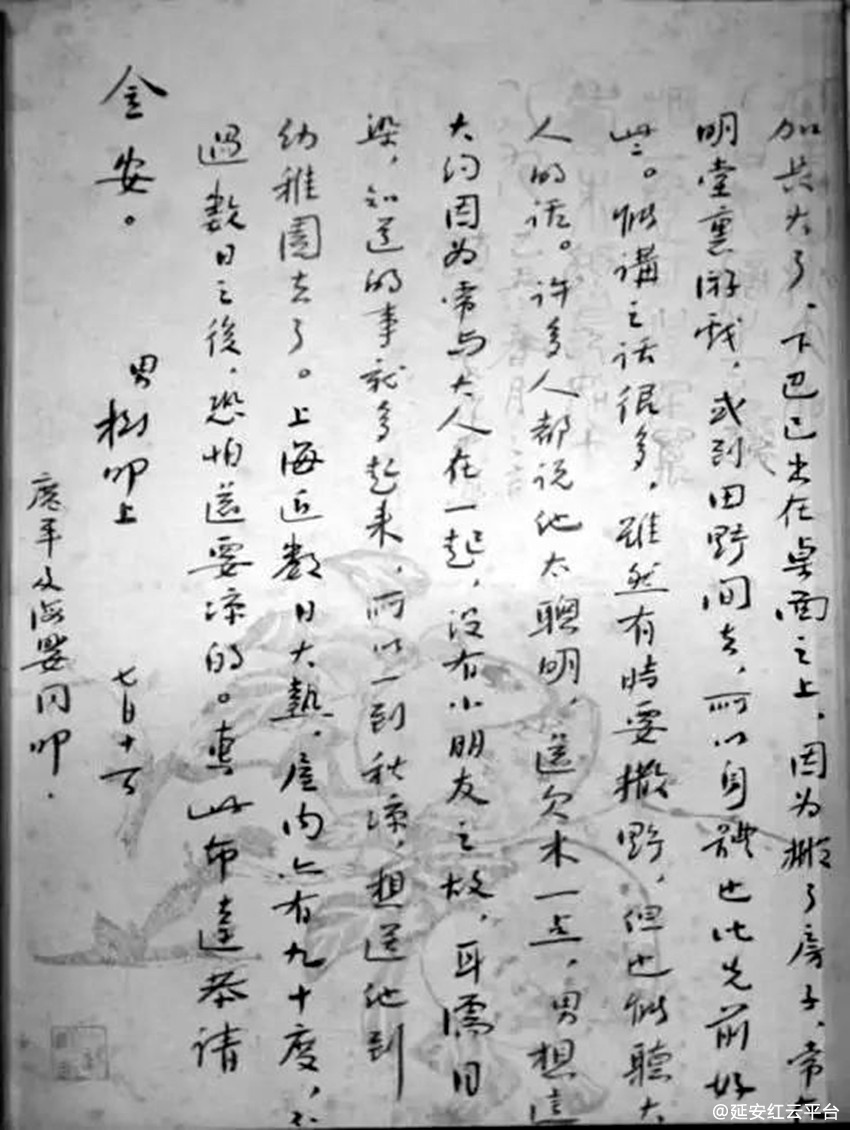 加長大了，下巴已出在桌面之上，因为搬了房子，常在
明堂裏游戏，或到田野間去，所以身體也比先前好
些。能講之话很多，雖然有時要撒野，但也能聽大
人的话。许多人都说他太聰明，還欠木一点，男想這
大约因为常与大人在一起，没有小朋友之故，耳濡目
染，知道的事就多起来，所以一到秋凉，想送他到
幼稚園去了。上海近數日大熱，屋内亦有九十度，不
過數日之後，恐怕還要凉的。專此布達恭請
金安。
男樹叩上 七月十一日
廣平及海嬰同叩.
@延安红云平台